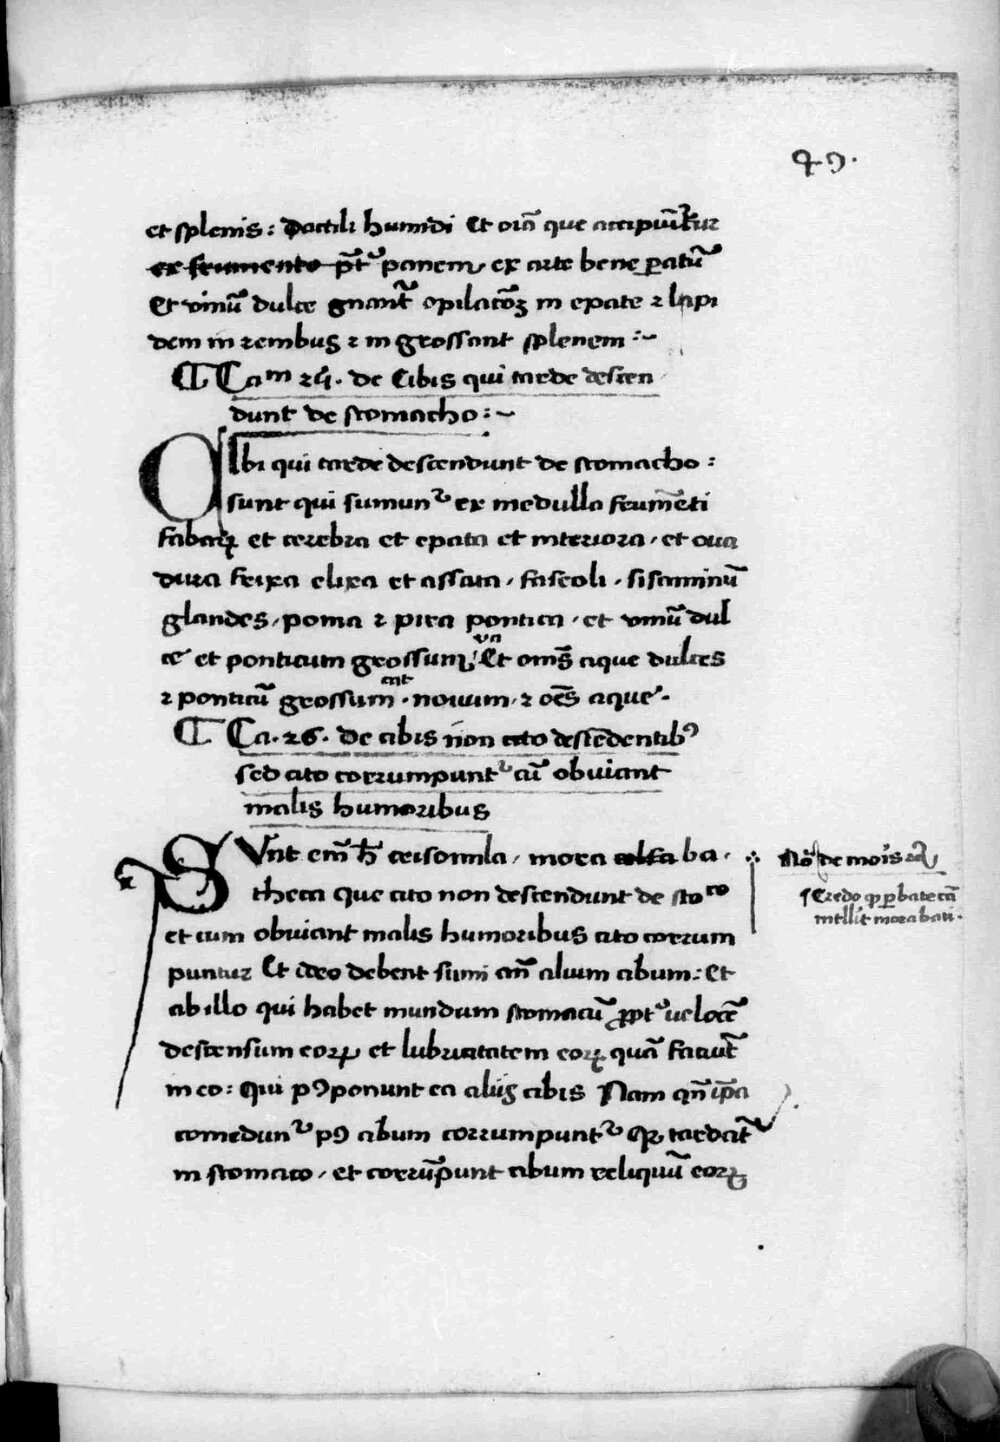 49.
et splenis: Dactili humidi Et oīa que accipiūtur
ex frumento p̄t᷒ panem ex arte bene paratū
Et vinū dulce gnant opilacōꝫ in epate ⁊ lapi
dem in renibus ⁊ ingrossant splenem :~
¶ Caᵐ 25. de Cibis qui tarde descen
dunt de stomacho :~
CIbi qui tarde descendunt de stomacho:
sunt qui sumunᵗ ex medulla frumēti
fabaꝝ et cerebra et epata et interiora, et oua
dura frixa elixa et assata, faseoli, sisaminū
glandes, poma ⁊ pira pontica, et vinū dul
ce et ponticum grossum, Et om̄s aque dulces
⁊ ponticū grossum. nouum, ⁊ oēs aque.
¶ Ca. 26. De cibis non cito descēdentibꝯ
sed cito corrumpuntᵗ cū obuiant
malis humoribus
SVnt em̄ h̄ crisomila, mora celsa ba,
theca que cito non descendunt de stoᶜᵒ
et cum obuiant malis humoribus cito corrum
puntur Et ideo debent sumi an̄ alium cibum: Et
ab illo qui habet mundum stomacū ꝓpt᷒ uelocē
descensum eoꝝ et lubricitatem eoꝝ quā faciūt
in eo: Qui pꝯponunt ea aliis cibis Nam qn̄ ip̄a
comedunᵗ pꝯ cibum corrumpuntᵗ qꝛ tardāt
in stomaco, et corrūpunt cibum reliquū eoꝝ
Credo ꝙ per bateca
intllit mora bati.